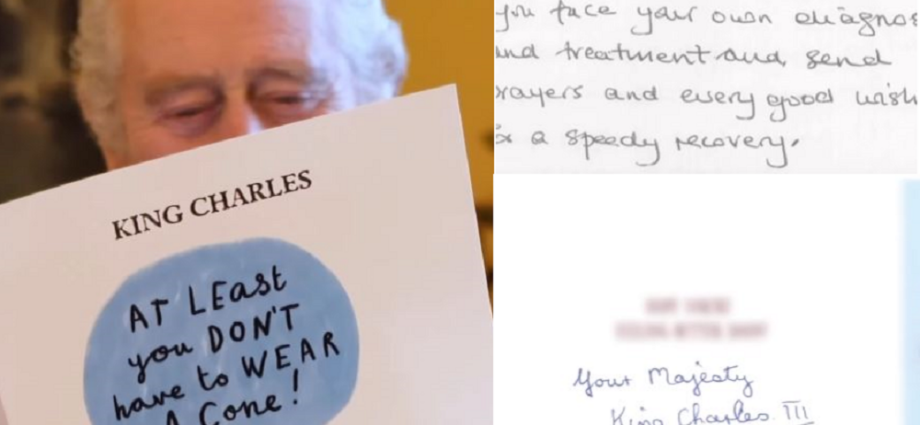 KING CHARLES
AT LEast
you DON'T
have to WEAR
A Cone!
you face your own diagnos
and treatment and send
rayers and every good wish
a speedy recovery.
Your Majesty
King Charles III